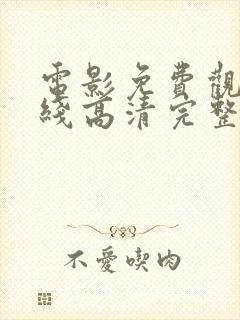 電影免費觀
綫高清完整
不愛喫肉